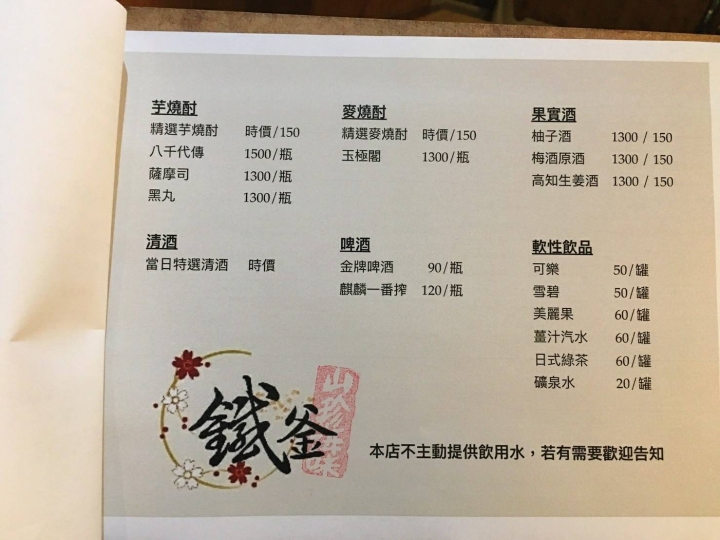 芋燒酎
精選芋燒酎 時價/150
八千代傳 1500/瓶
薩摩司 1300/瓶
黑丸 1300/瓶
麥燒酎
精選麥燒酎 時價/150
玉極閣 1300/瓶
果實酒
柚子酒 1300 / 150
梅酒原酒 1300 / 150
高知生姜酒 1300 / 150
清酒
當日特選清酒 時價
啤酒
金牌啤酒 90/瓶
麒麟一番搾 120/瓶
軟性飲品
可樂 50/罐
雪碧 50/罐
美麗果 60/罐
薑汁汽水 60/罐
日式綠茶 60/罐
礦泉水 20/罐
鐵釜
山珍海味
本店不主動提供飲用水，若有需要歡迎告知